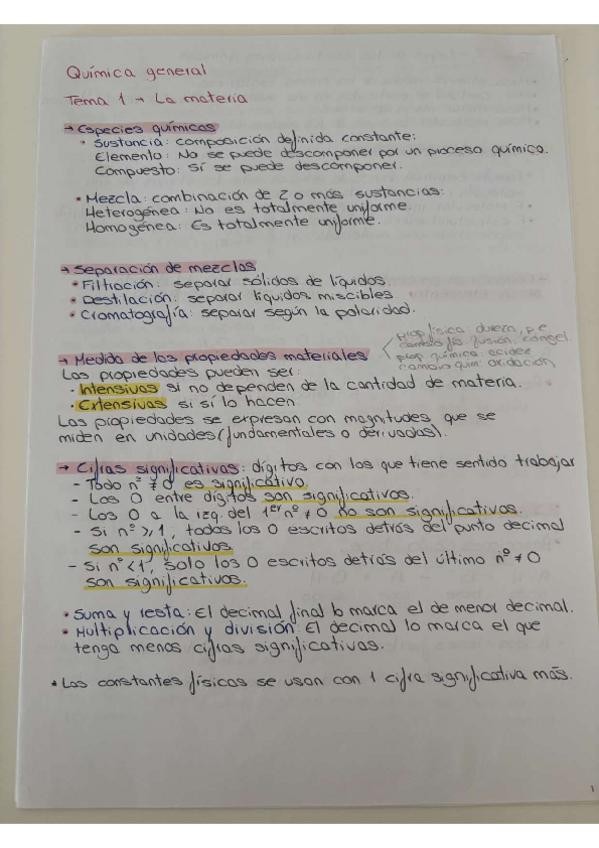 Química general
Tema 1 → La materia
→ Especies químicas
• Sustancia: composición definida constante:
Elemento: No se puede descomponer por un proceso químico.
Compuesto: Sí se puede descomponer.
• Mezcla: combinación de 2 o más sustancias:
Heterogénea: No es totalmente uniforme.
Homogénea: Es totalmente uniforme.
→ Separación de mezclas
• Filtración: separar sólidos de líquidos.
• Destilación: separar líquidos miscibles
• Cromatografía: separar según la polaridad.
→ Medida de las propiedades materiales
prop física: dureza, p.e
cambio fís: fusión, congel.
prop química: acidez
cambio quím: oxidación
Las propiedades pueden ser:
• Intensivas si no dependen de la cantidad de materia.
• Extensivas si sí lo hacen
Las propiedades se expresan con magnitudes que se
miden en unidades (fundamentales o derivadas).
→ Cifras significativas: dígitos con los que tiene sentido trabajar
- Todo nº ≠ 0 es significativo.
- Los 0 entre dígitos son significativos.
- Los 0 a la izq. del 1er nº ≠ 0 no son significativos.
- Si nº ≥ 1, todos los 0 escritos detrás del punto decimal
son significativos
- Si nº < 1, solo los 0 escritos detrás del último nº ≠ 0
son significativos.
• Suma y resta: El decimal final lo marca el de menor decimal.
• Multiplicación y división: El decimal lo marca el que
tenga menos cifras significativas.
• Las constantes físicas se usan con 1 cifra significativa más.
1